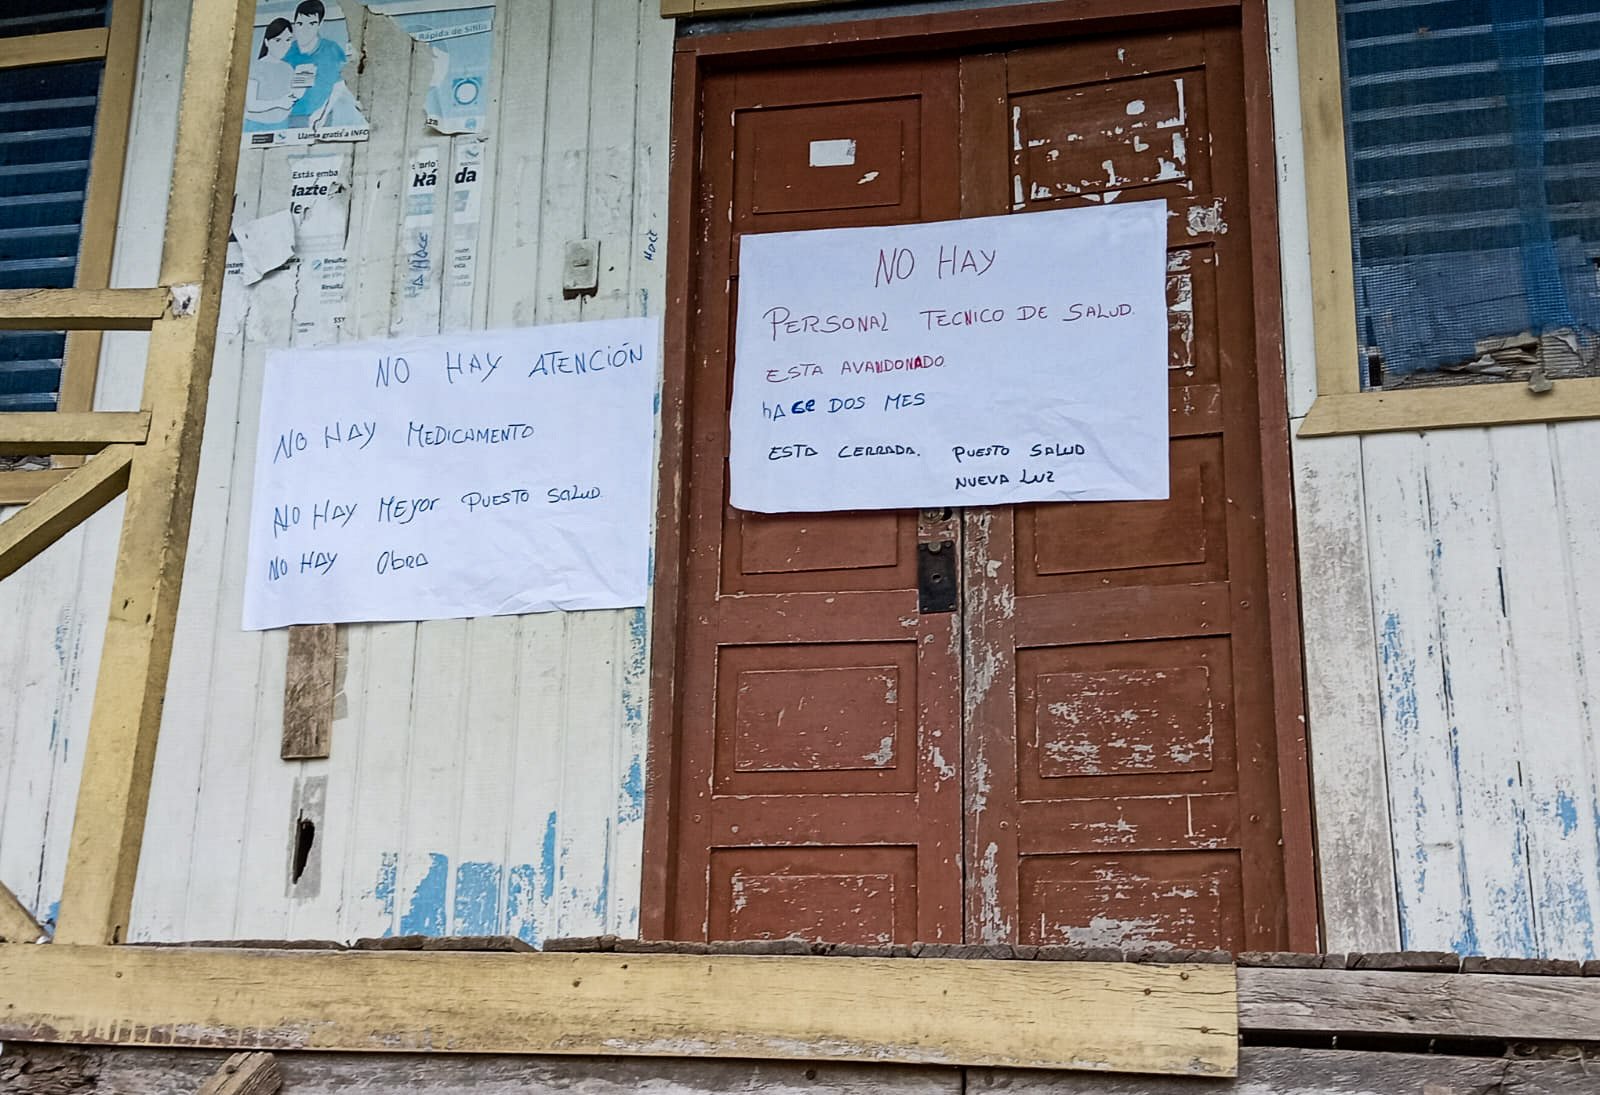 Rápida de Sífilis
Llama gratis a INFO
Estás emba
Hazte
Rá da
Resulta
Resulta
SSY
HACE
NO HAY ATENCIÓN
NO HAY MEDICAMENTO
NO HAY MEJOR PUESTO SALUD.
NO HAY ObRA
NO HAY
PERSONAL TECNICO DE SALUD.
ESTA AVANDONADO
hAse DOS MES
ESTA CERRADA. PUESTO SALUD
NUEVA LUZ